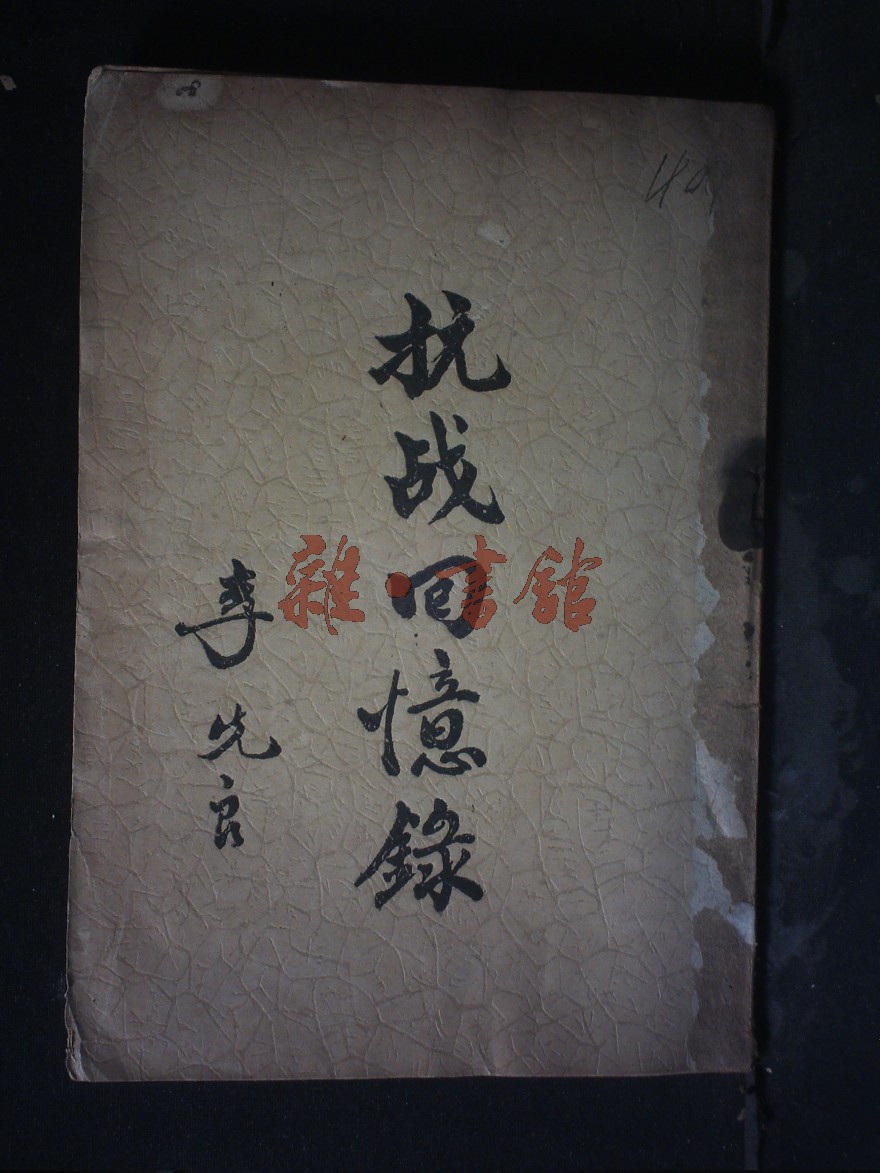 抗战回憶錄
李先良
雜·書館